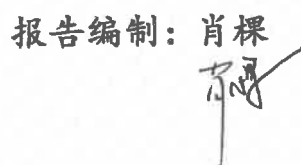 报告编制：肖棵